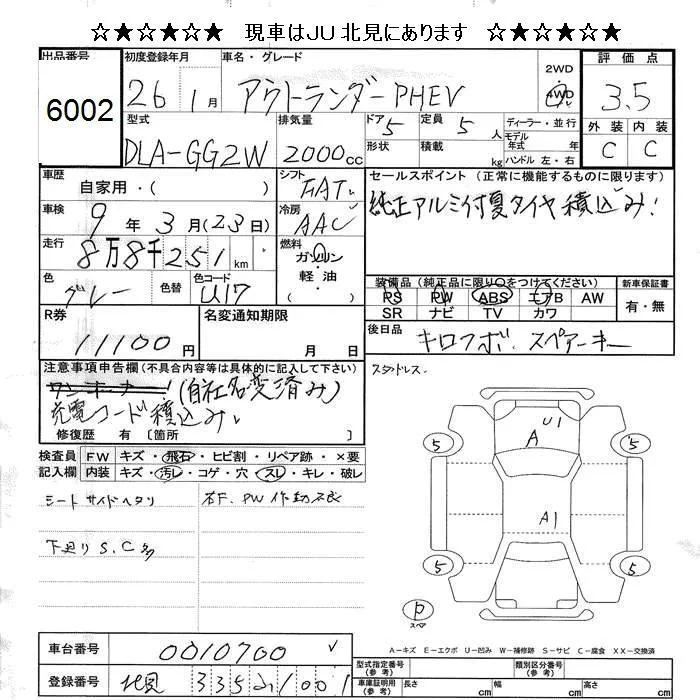 ☆★☆★☆★ 現車はJU北見にあります ☆★☆★☆★
出品番号
6002
初度登録年月
26 1月
車名・グレード
アウトランダーPHEV
2WD
4WD
評価点
3.5
外装 内装
C C
型式
DLA-GG2W
排気量
2000cc
ドア 5
形状
定員 5 人
積載 kg
ディーラー・並行
モデル年式 年式
ハンドル 左・右
車歴
自家用・( )
シフト
FAT
セールスポイント(正常に機能するものに限ります)
純正アルミ付夏タイヤ積込み!
車検
9年3月(23日)
冷房
AAC
走行
8万8千251km
燃料
ガソリン
軽・油
色
グレー
色替
色コード
U17
装備品(純正品に限り○をつけてください)
PS PW ABS エアB AW
SR ナビ TV カワ
新車保証書
有・無
R券
11100円
名変通知期限
月 日
後日品
キロクボ、スペアーキー
注意事項申告欄(不具合内容等は具体的に記入して下さい)
ワンオーナー!(自社名変済み)
充電コード積込み、
修復歴 有 〔箇所 〕
スタッドレス
検査員記入欄
FW キズ・飛石・ヒビ割・リペア跡・×要
内装 キズ・汚レ・コゲ・穴・スレ・キレ・破レ
シートサイドヘタリ
右F.PW作動不良
下廻りS.C多
U1
A
A1
5
5
5
5
P
スペア
A-キズ E-エクボ U-凹み W-補修跡 S-サビ C-腐食 XX-交換済
車台番号
0010700
登録番号
北見 335 1001
型式指定番号(参考)
類別区分番号(参考)
車庫証明用(参考)
長さ cm
幅 cm
高さ cm